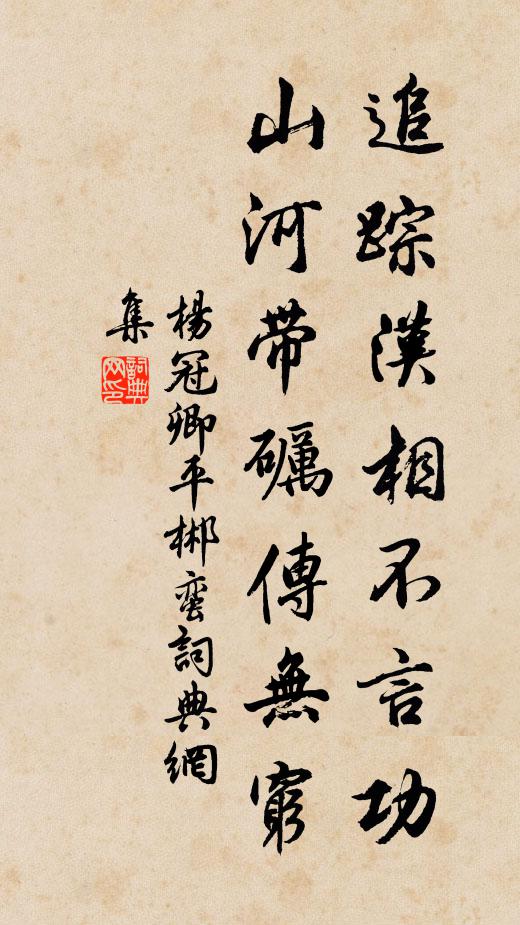 追踪漢相不言功
山河带礪傳無窮
楊冠卿平郴蛮詞典網
集
詞典
网印